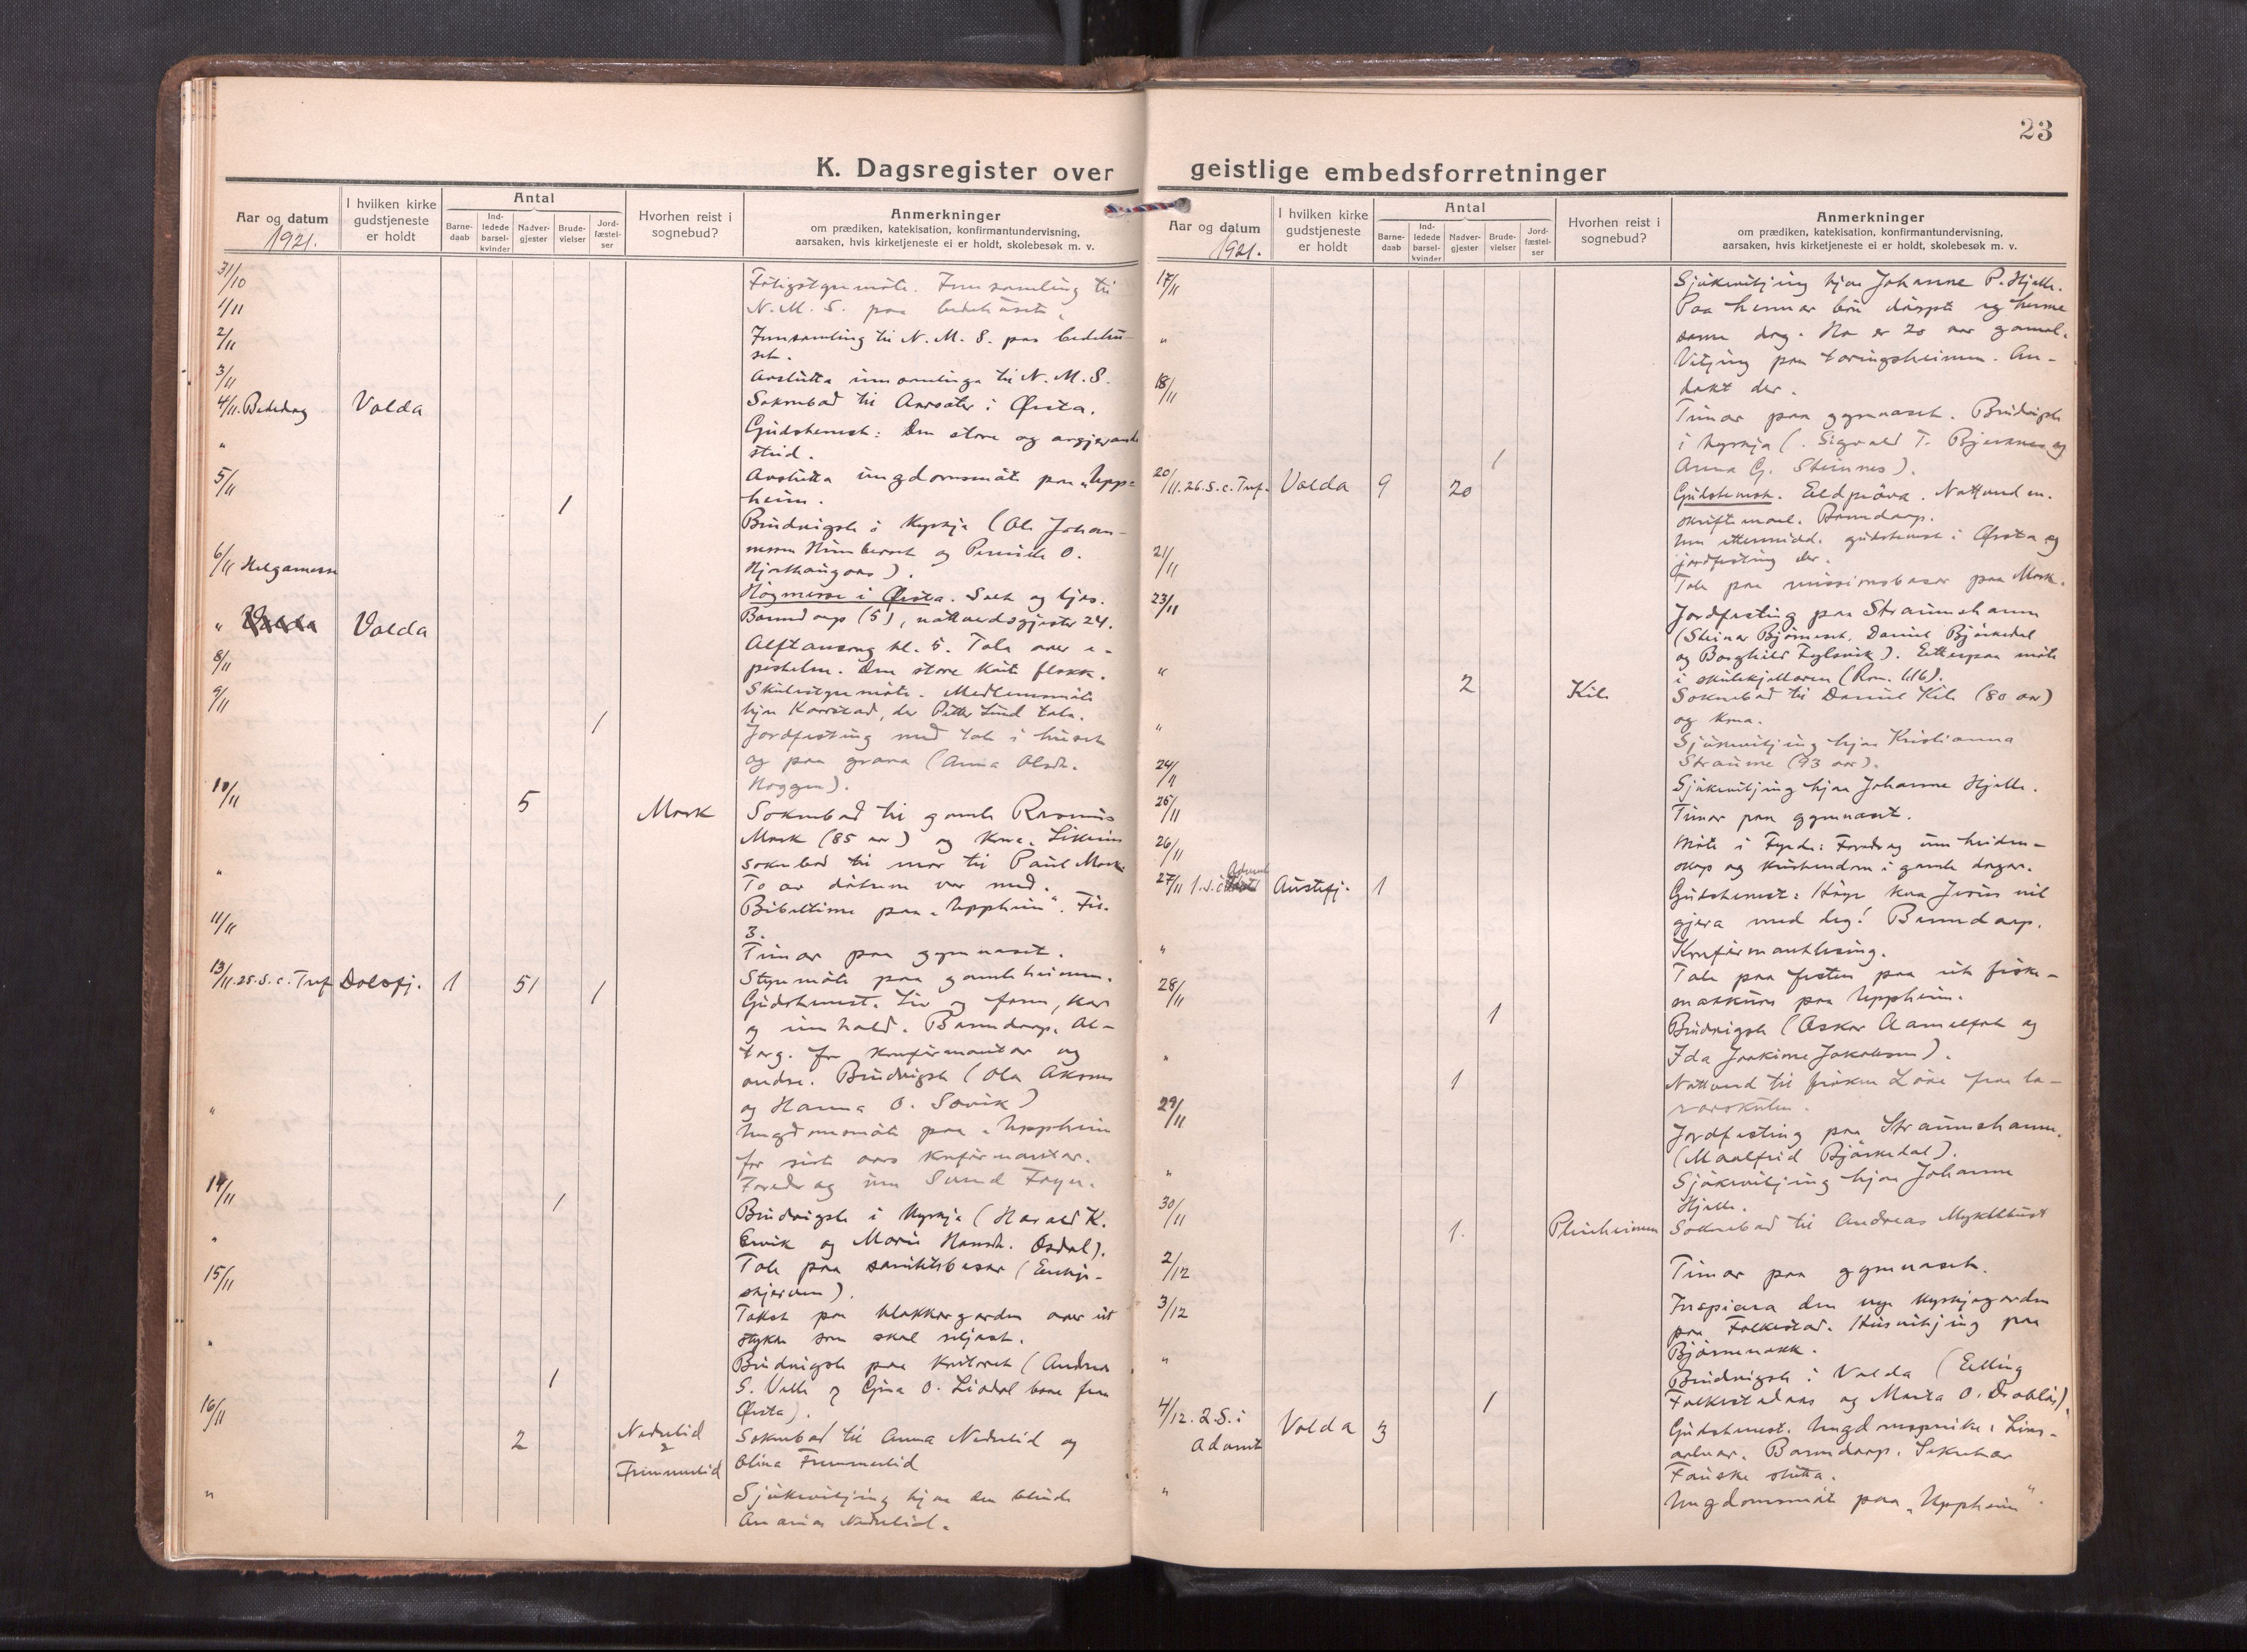 23
K. Dagsregister over geistlige embedsforretninger
Aar og datum
1921.
I hvilken kirke
gudstjeneste
er holdt
Antal
Barne-
daab
Ind-
ledede
barsel-
kvinder
Nadver-
gjester
Brude-
vielser
Jord-
fæstel-
ser
Hvorhen reist i
sognebud?
Anmerkninger
om prædiken, katekisation, konfirmantundervisning,
aarsaken, hvis kirketjeneste ei er holdt, skolebesøk m. v.
31/10
Innsamling til
1/11
N. M. S. paa bedehuset.
2/11
Innsamling til N. M. S. paa bedehu-
set.
3/11
Avslutta innsamlinga til N. M. S.
4/11. Bededag Volda
Soknebod til Aarsæter i Ørsta.
"
Gudstenest: Den store og avgjerande
strid.
5/11
Avslutta ungdomsmøte paa "Upp-
heim.
1
Brudvigsle i kyrkja (Ole Johan-
og Pernille O.
6/11 Helgamesse
Høgmesse i Ørsta. Salt og ljos.
" Volda
Barnedaap (5), nattverdsgjester 24.
Aftansong kl. 5. Tala over e-
8/11
pistelen. Den store kvite flokk.
9/11
Skulestyremøte. Medlemsmøte
hjaa Kaarstad, der Petter Lund tala.
1
Jordfesting med tale i huset
og paa grava (Anna Olsdt.
10/11
5
Mork
Soknebod til gamle Rasmus
Mork (85 aar) og kona. Likeins
soknebod til mor til Paul Mork
To av døtrene var med.
"
Bibeltime paa "Uppheim". Fil.
3.
11/11
Timar paa gymnaset.
13/11. 25. S. e. Tref. Dalsfj. 1 51 1
Styremøte paa gamleheimen.
Gudstenest. Liv og form, kar
og innhald. Barnedaap. Al-
targ. for konfirmantar og
andre. Brudvigsle (Ola
og Hanna O. Søvik)
"
Ungdomsmøte paa "Uppheim
for siste aars konfirmantar.
Foredrag um Svend Foyn.
14/11
1
Brudvigsle i kyrkja (Harald K.
Ervik og Marie Hansdt. Osdal).
"
Tale paa sanitetsbasar (Enkje-
skjerven).
15/11
Takst paa klokkargarden over eit
stykke som skal seljast.
"
1
Brudvigsle paa kontoret (Andreas
S. Velle og Gina O. Lisdal
Ørsta).
16/11
2
Nedrelid
Soknebod til Anna Nedrelid og
Frammerlid
Olina Frammerlid
"
Sjukevitjing hjaa den blinde
Ananias Nedrelid.
Aar og datum
1921.
I hvilken kirke
gudstjeneste
er holdt
Antal
Barne-
daab
Ind-
ledede
barsel-
kvinder
Nadver-
gjester
Brude-
vielser
Jord-
fæstel-
ser
Hvorhen reist i
sognebud?
Anmerkninger
om prædiken, katekisation, konfirmantundervisning,
aarsaken, hvis kirketjeneste ei er holdt, skolebesøk m. v.
17/11
Sjukevitjing hjaa Johanne P. Hjelle.
Paa hennar bøn døypte eg henne
same dag. Ho er 20 aar gamal.
"
Vitjing paa tæringsheimen. An-
dakt der.
18/11
Timar paa gymnaset. Brudvigsle
1
i kyrkja (Sigvald T. Bjerknes og
Anna G. Steinnes).
20/11. 26. S. e. Tref. Volda 9 20
Gudstenest. Eldprøva. Nattverd m.
skriftemaal. Barnedaap.
Um ettermidd. gudstenest i Ørsta og
jordfesting der.
21/11
Tale paa missionsbasar paa Mork.
23/11
Jordfesting paa Straumshamn
(Steinar Bjørneset, Daniel Bjørkedal
og Borghild
). Etterpaa møte
i skulekjellaren (Rom. 1.16).
"
2
Kile
Soknebod til Daniel Kile (80 aar)
og kona.
"
Sjukevitjing hjaa Kristianna
Straume (93 aar).
24/11
Sjukevitjing hjaa Johanne Hjelle.
25/11
Timar paa gymnaset.
26/11
Møte i Fyrde: Foredrag um heiden-
skap og kristendom i gamle dagar.
27/11 1. s. i Advent Austefj. 1
Gudstenest: Høyr kva Jesus vil
gjera med deg! Barnedaap.
"
Konfirmantlesing.
28/11
Tale paa festen paa ut fiske-
paa Uppheim.
1
Brudvigsle (Oskar Aamelfot og
Ida Joakime Jakobsen).
"
1
Nattverd til frøken Løne fraa la-
rarskulen.
29/11
Jordfesting paa Straumshamn.
(Maalfrid Bjørkedal).
"
Sjukevitjing hjaa Johanne
Hjelle.
30/11
1.
Pleieheimen
Soknebod til Andreas Myklebust
2/12
Timar paa gymnaset.
3/12
Inspisera den nye kyrkjegarden
paa Folkestad. Husvitjing paa
Bjørnenakk.
"
1
Brudvigsle i Volda (Elling
Folkestadaas og Marta O. Drabløs).
4/12. 2. S. i
Advent Volda 3
Gudstenest. Ungdomspreike: Livs-
Barnedaap. Sekretær
Fauske slutta.
"
Ungdomsmøte paa "Uppheim".